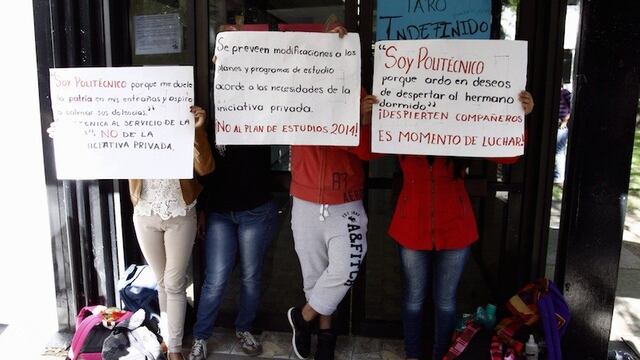 TARO
INDEFINIDO
"SOY POLITÉCNICO porque me duele
la patria en mis entrañas y aspiro
a calmar sus dolencias."
TÉCNICA AL SERVICIO DE LA
NO DE LA
INICIATIVA PRIVADA.
Se preveen modificaciones a los
planes y programas de estudio
acorde a las necesidades de la
iniciativa privada.
NO AL PLAN DE ESTUDIOS 2014!
"SOY POLITÉCNICO
porque ardo en deseos
de despertar al hermano
dormido"
¡DESPIERTEN COMPAÑEROS
ES MOMENTO DE LUCHAR!
87
A&FITCH